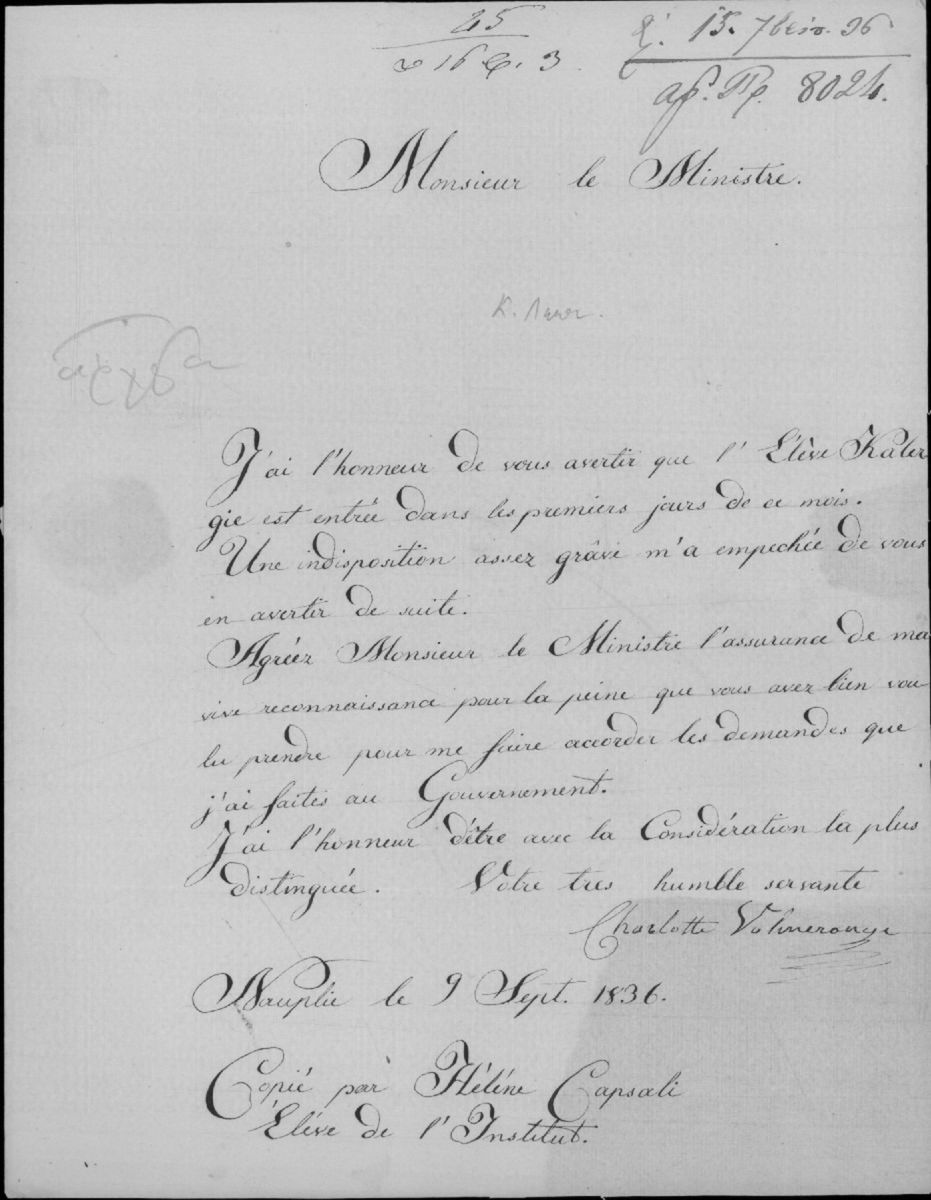 45
16 3
15. 7bris. 36
αρ. Πρ. 8024.
Monsieur le Ministre.
J'ai l'honneur de vous avertir que l'Elève Kaler
gie est entrée dans les premiers jours de ce mois.
Une indisposition assez grâve m'a empechée de vous
en avertir de suite.
Agréez Monsieur le Ministre l'assurance de ma
vive reconnaissance pour la peine que vous avez bien vou
lu prendre pour me faire accorder les demandes que
j'ai faites au Gouvernement.
J'ai l'honneur d'être avec la Considération la plus
distinguée. Votre tres humble servante
Charlotte Volmerange
Nauplie le 9 Sept. 1836.
Copié par Hélène Capsali
Élève de l'Institut.